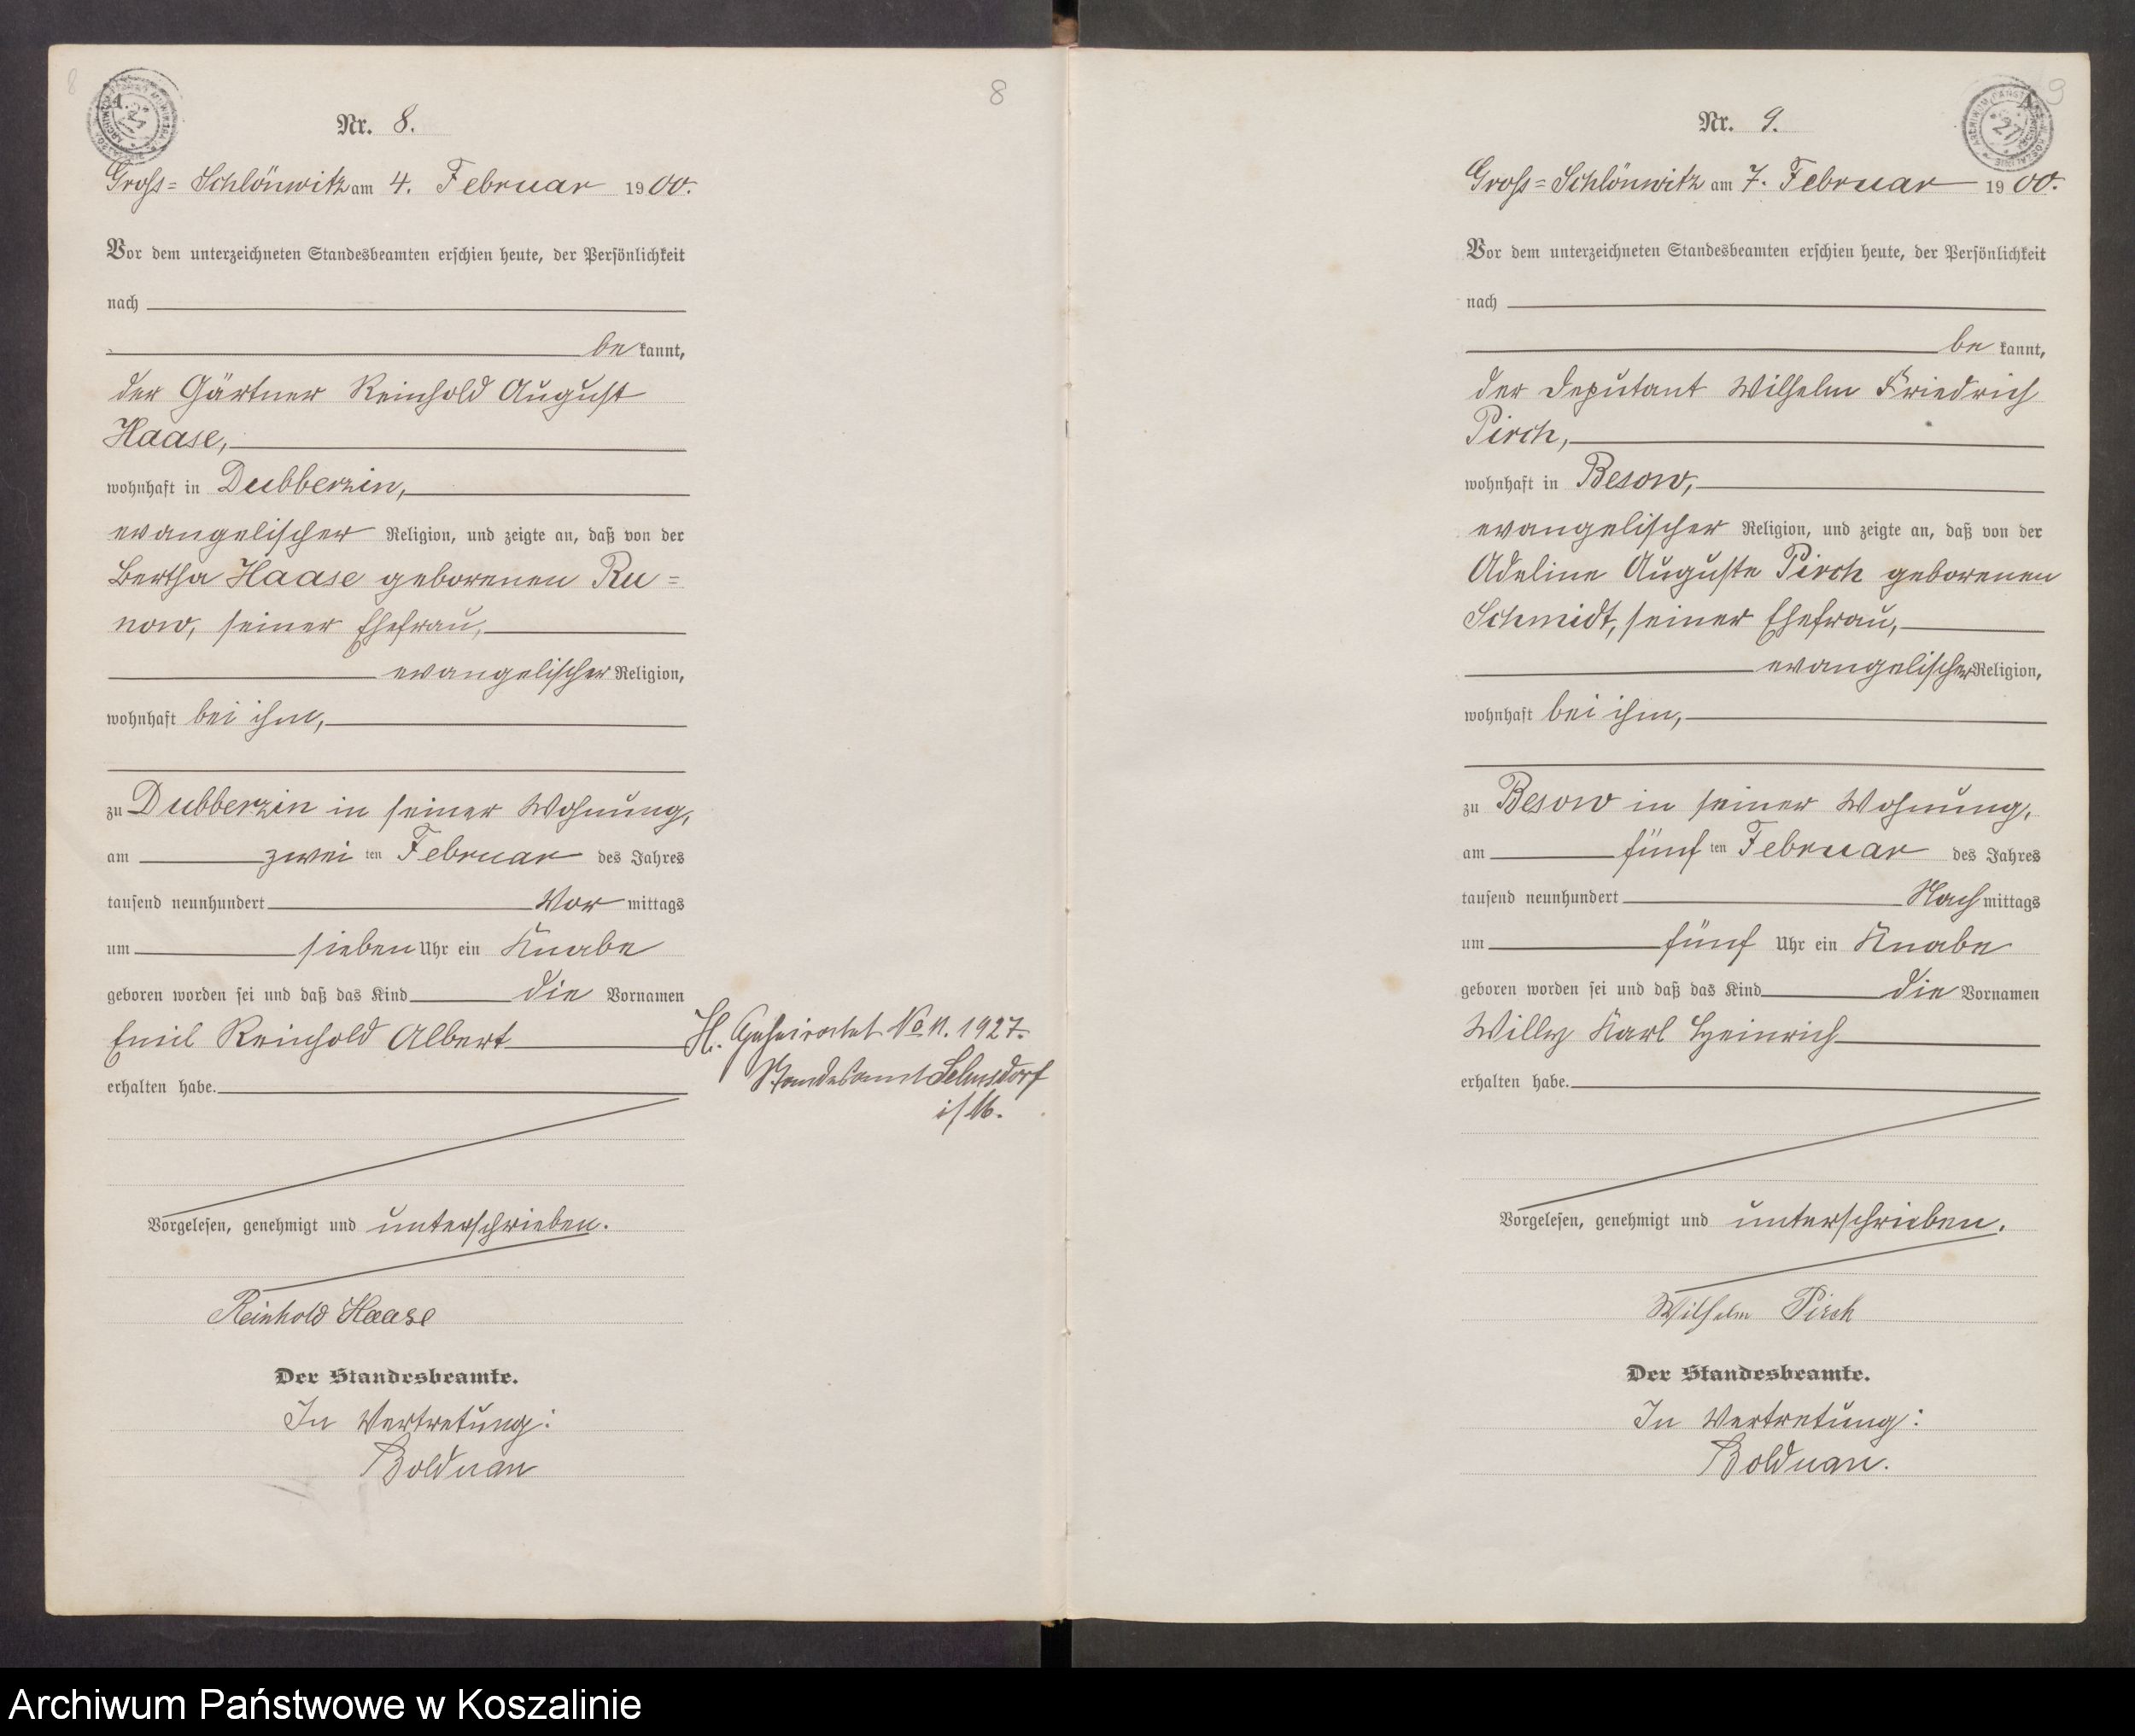 8
8
Nr. 8.
Gross=Schlönwitz am 4. Februar 1900.
Vor dem unterzeichneten Standesbeamten erschien heute, der Persönlichkeit
nach
bekannt,
der Gärtner Reinhold August
Haase,
wohnhaft in Dubberzin,
evangelischer Religion, und zeigte an, daß von der
Bertha Haase geborenen Ru=
now, seiner Ehefrau,
evangelischer Religion,
wohnhaft bei ihm,
zu Dubberzin in seiner Wohnung,
am zweiten Februar des Jahres
tausend neunhundert Vormittags
um sieben Uhr ein Knabe
geboren worden sei und daß das Kind die Vornamen
Emil Reinhold Albert
erhalten habe.
H. Geheiratet No 11. 1927.
Standesamt
i/M.
Vorgelesen, genehmigt und unterschrieben.
Reinhold Haase
Der Standesbeamte.
In Vertretung:
Bolduan
9
Nr. 9.
Gross=Schlönwitz am 7. Februar 1900.
Vor dem unterzeichneten Standesbeamten erschien heute, der Persönlichkeit
nach
bekannt,
der Deputant Wilhelm Friedrich
Pirch,
wohnhaft in Besow,
evangelischer Religion, und zeigte an, daß von der
Adeline Auguste Pirch geborenen
Schmidt, seiner Ehefrau,
evangelischer Religion,
wohnhaft bei ihm,
zu Besow in seiner Wohnung,
am fünften Februar des Jahres
tausend neunhundert Nachmittags
um fünf Uhr ein Knabe
geboren worden sei und daß das Kind die Vornamen
Willy Karl Heinrich
erhalten habe.
Vorgelesen, genehmigt und unterschrieben.
Wilhelm Pirch
Der Standesbeamte.
In Vertretung:
Bolduan.
Archiwum Państwowe w Koszalinie